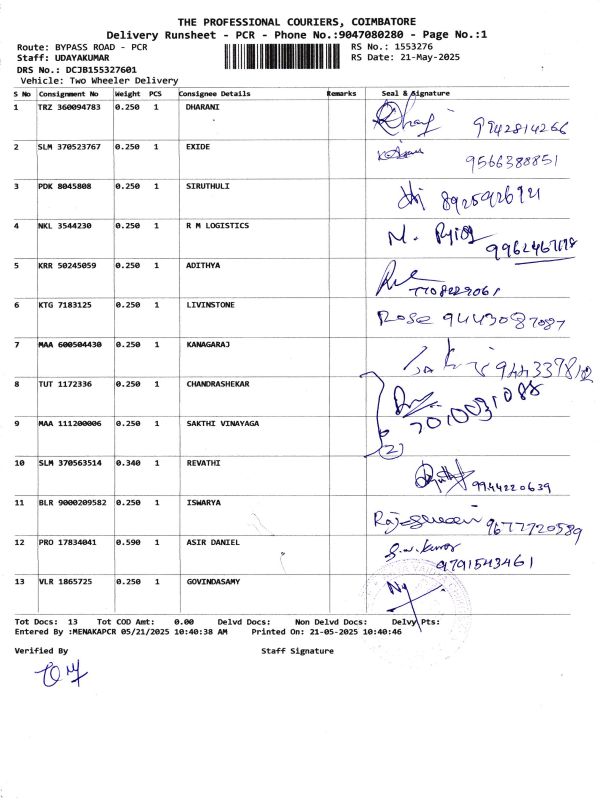 THE PROFESSIONAL COURIERS, COIMBATORE
Delivery Runsheet - PCR - Phone No.:9047080280 - Page No.:1
Route: BYPASS ROAD - PCR RS No.: 1553276
Staff: UDAYAKUMAR RS Date: 21-May-2025
DRS No.: DCJB155327601
Vehicle: Two Wheeler Delivery
S No Consignment No Weight PCS Consignee Details Remarks Seal & Signature
1 TRZ 360094783 0.250 1 DHARANI 9942814266
2 SLM 370523767 0.250 1 EXIDE 9566388851
3 PDK 8045808 0.250 1 SIRUTHULI
4 NKL 3544230 0.250 1 R M LOGISTICS M.
5 KRR 50245059 0.250 1 ADITHYA
6 KTG 7183125 0.250 1 LIVINSTONE Rose 9443087087
7 MAA 600504430 0.250 1 KANAGARAJ
8 TUT 1172336 0.250 1 CHANDRASHEKAR 7010031088
9 MAA 111200006 0.250 1 SAKTHI VINAYAGA (2)
10 SLM 370563514 0.340 1 REVATHI 9944220639
11 BLR 9000209582 0.250 1 ISWARYA 9677720589
12 PRO 17834041 0.590 1 ASIR DANIEL
9791543461
13 VLR 1865725 0.250 1 GOVINDASAMY
Tot Docs: 13 Tot COD Amt: 0.00 Delvd Docs: Non Delvd Docs: Delvy Pts:
Entered By :MENAKAPCR 05/21/2025 10:40:38 AM Printed On: 21-05-2025 10:40:46
Verified By Staff Signature